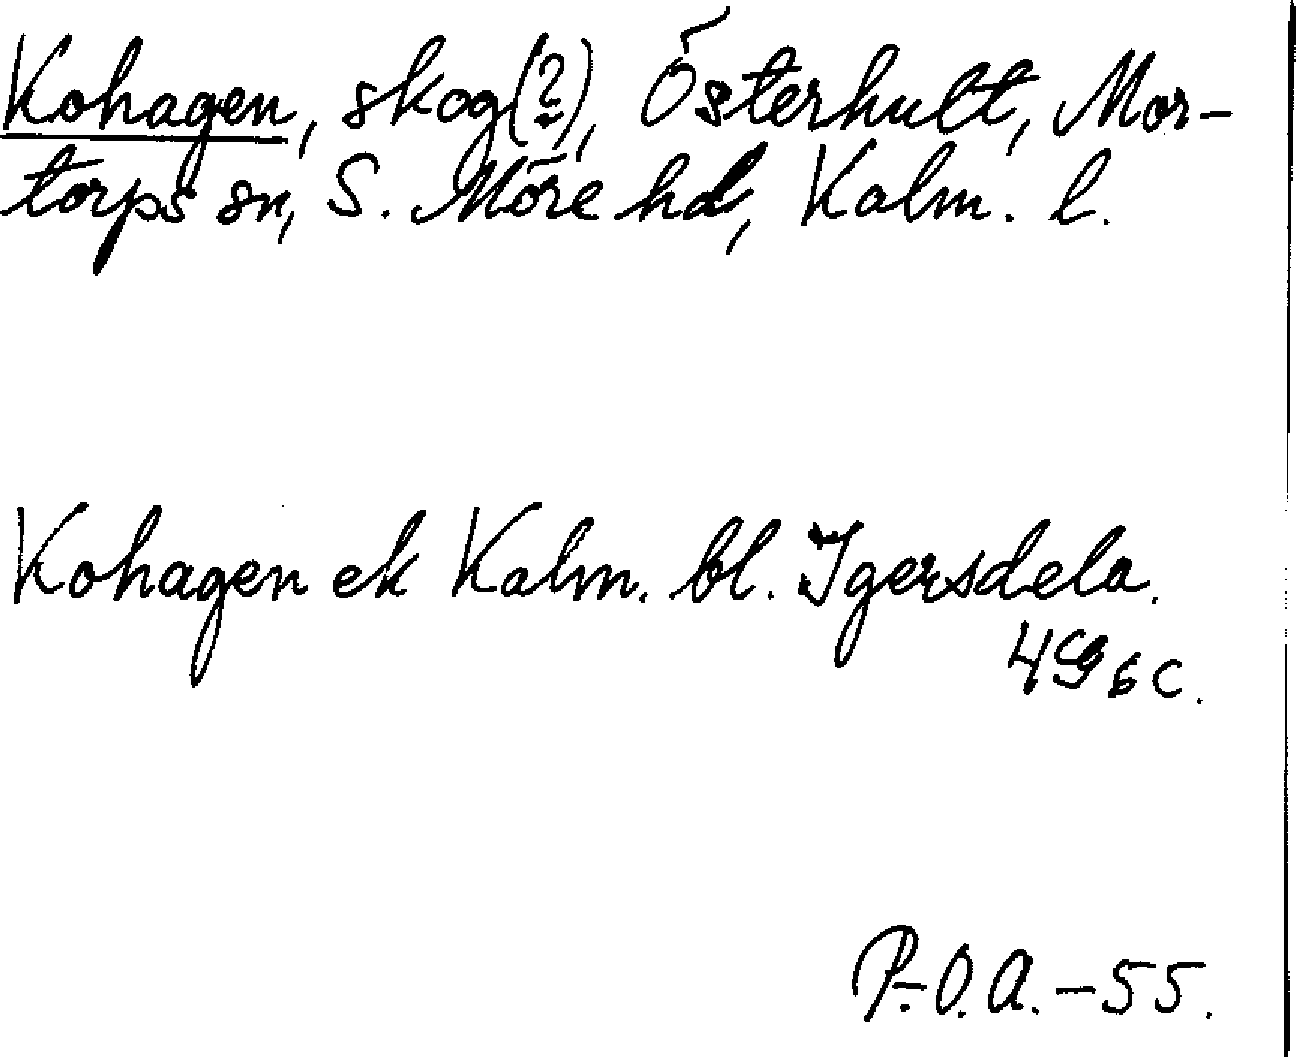 Kohagen, skog(?), Österhult, Mor-
torps sn, S. Möre hd, Kalm. l.
Kohagen ek Kalm. bl. Igersdela.
49 6 c.
P.-O. A. - 55.